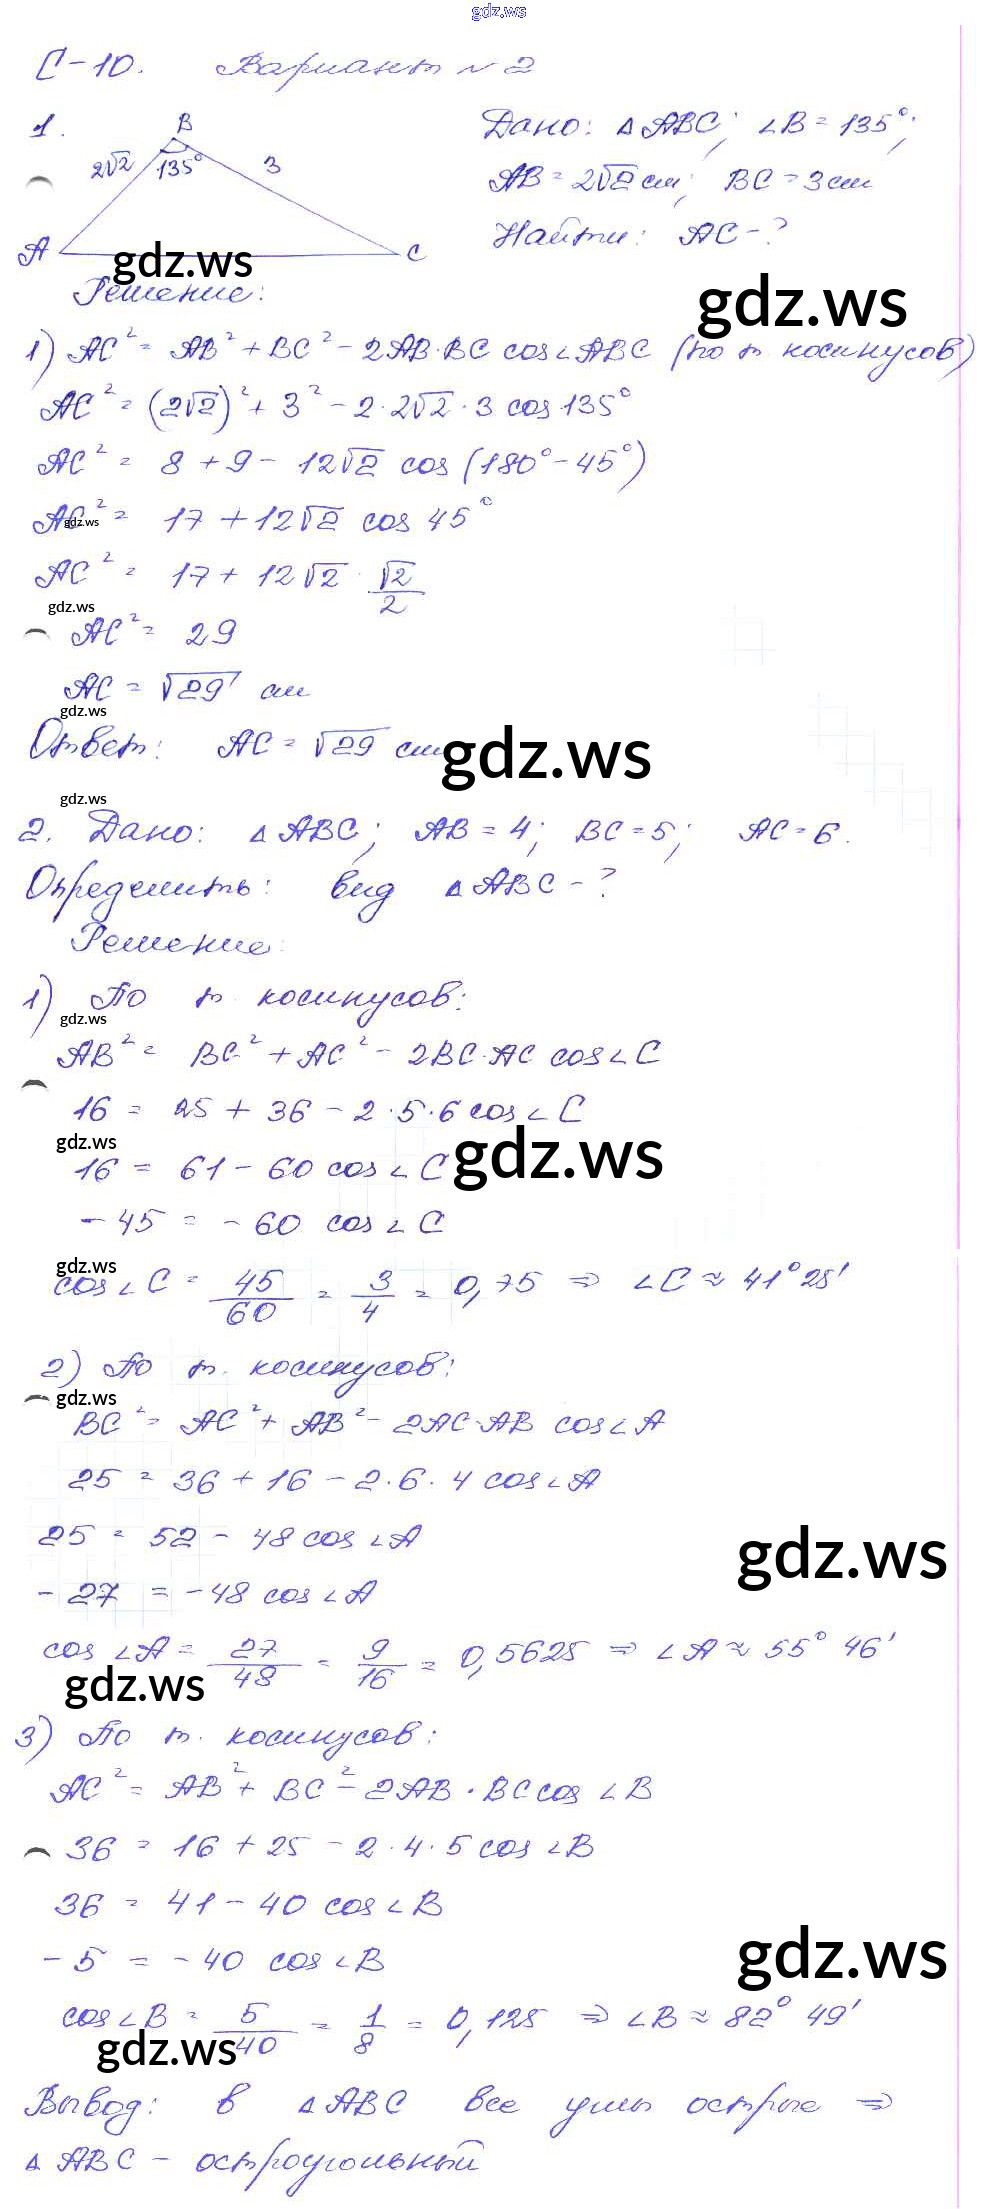 gdz.ws
С-10. Вариант №2
1. B
2√2 135° 3
A C
Дано: ΔABC; ∠B = 135°;
AB = 2√2 см; BC = 3 см
Найти: AC - ?
gdz.ws
gdz.ws
Решение:
1) AC² = AB² + BC² - 2AB·BC cos∠ABC (по т. косинусов)
AC² = (2√2)² + 3² - 2·2√2·3 cos 135°
AC² = 8 + 9 - 12√2 cos (180° - 45°)
AC² = 17 + 12√2 cos 45°
gdz.ws
AC² = 17 + 12√2 · √2/2
gdz.ws
AC² = 29
AC = √29 см
gdz.ws
Ответ: AC = √29 см
gdz.ws
gdz.ws
2. Дано: ΔABC; AB = 4; BC = 5; AC = 6.
Определить: вид ΔABC - ?
Решение:
1) По т. косинусов:
gdz.ws
AB² = BC² + AC² - 2BC·AC cos∠C
16 = 25 + 36 - 2·5·6 cos∠C
gdz.ws
gdz.ws
16 = 61 - 60 cos∠C
-45 = -60 cos∠C
gdz.ws
cos∠C = 45/60 = 3/4 = 0,75 ⇒ ∠C ≈ 41°25'
2) По т. косинусов:
gdz.ws
BC² = AC² + AB² - 2AC·AB cos∠A
25 = 36 + 16 - 2·6·4 cos∠A
25 = 52 - 48 cos∠A
gdz.ws
-27 = -48 cos∠A
cos∠A = 27/48 = 9/16 = 0,5625 ⇒ ∠A ≈ 55° 46'
gdz.ws
3) По т. косинусов:
AC² = AB² + BC² - 2AB·BC cos∠B
36 = 16 + 25 - 2·4·5 cos∠B
36 = 41 - 40 cos∠B
-5 = -40 cos∠B
gdz.ws
cos∠B = 5/40 = 1/8 = 0,125 ⇒ ∠B ≈ 82° 49'
gdz.ws
Вывод: в ΔABC все углы острые ⇒
ΔABC - остроугольный